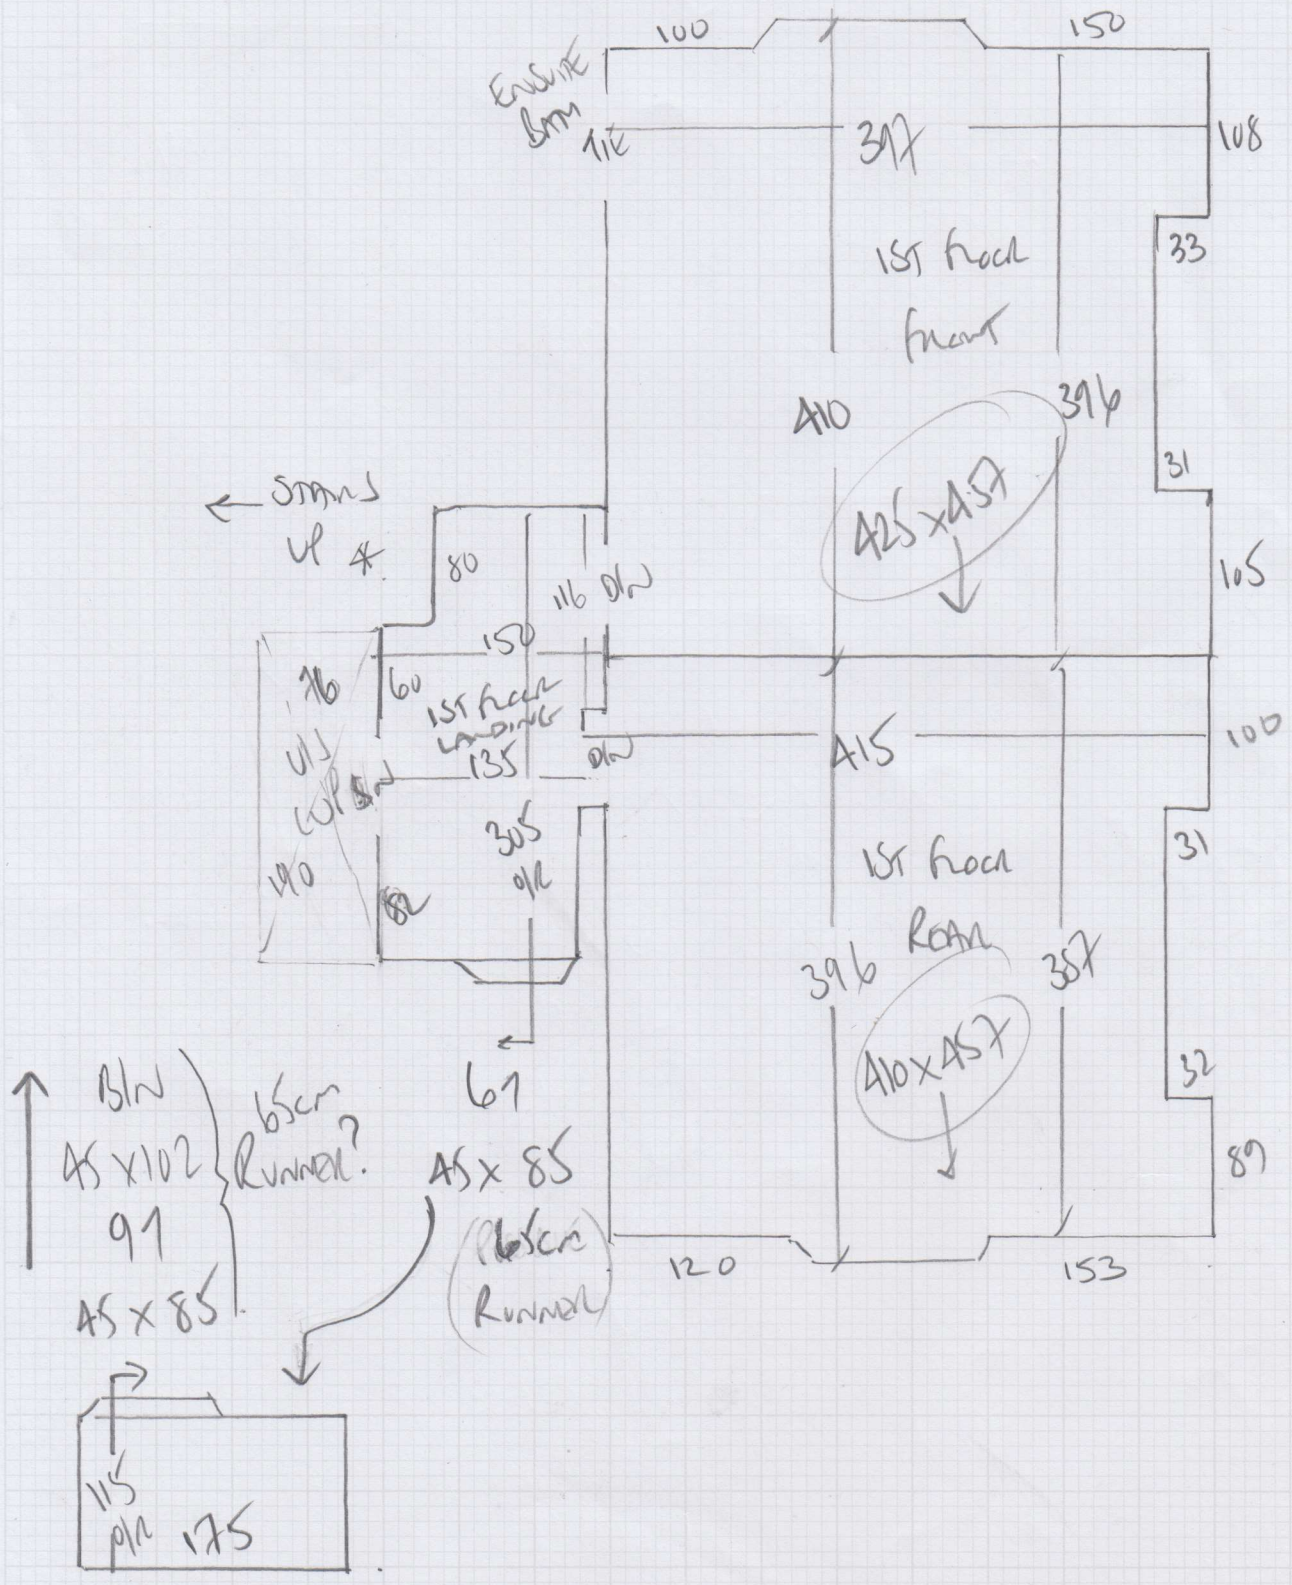 100
150
ENSUITE
BATH
TILE
397
108
33
1ST FLOOR
FRONT
410
396
31
425 x 457
← STAIRS
UP *
80
116 D/N
105
150
76
60
1ST FLOOR
LANDING
D/N
415
100
U/S
135
305
O/R
190
82
31
1ST FLOOR
REAR
396
357
410 x 457
32
89
B/N
45 x 102
91
45 x 85
65cm
RUNNER?
61
45 x 85
65cm
RUNNER
120
153
115
O/R
175